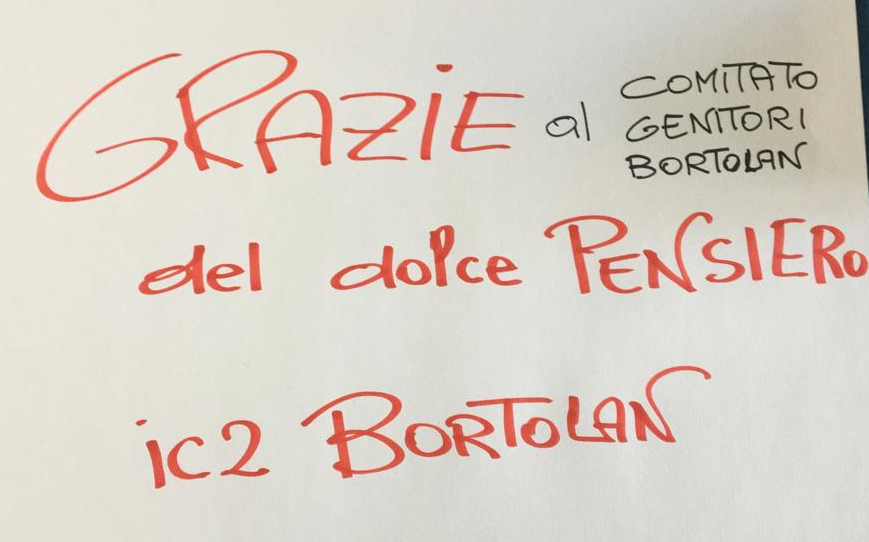 GRAZIE al COMITATO
GENITORI
BORTOLAN
del dolce PENSIERO
ic2 BORTOLAN